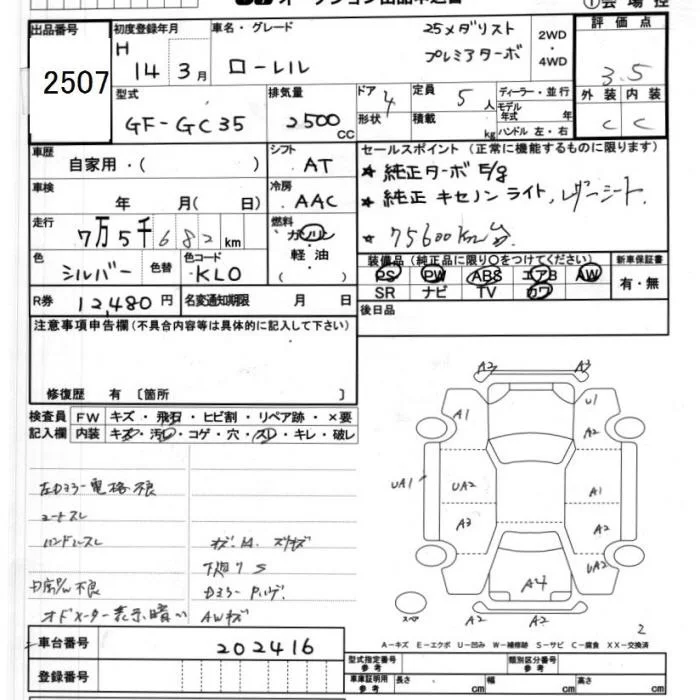 出品番号
2507
初度登録年月
H 14年 3月
車名・グレード
ローレル
25メダリスト
プレミアターボ
2WD
・
4WD
評価点
3.5
外装 内装
C C
型式
GF-GC35
排気量
2500 CC
ドア 4
形状
定員 5 人
積載 kg
ディーラー・並行
モデル年式 年
ハンドル 左・右
車歴
自家用・( )
シフト
AT
車検
年 月( 日)
冷房
AAC
走行
7万5千682 km
燃料
ガソリン
・
軽油
( )
色
シルバー
色替
色コード
KL0
R券
12,480円
名変通知期限 月 日
セールスポイント (正常に機能するものに限ります)
★ 純正ターボ E/g
★ 純正 キセノンライト, レザーシート.
★ 75600km台
装備品 (純正品に限り○をつけてください)
PS PW ABS エアB AW
SR ナビ TV カワ
新車保証書
有・無
後日品
注意事項申告欄 (不具合内容等は具体的に記入して下さい)
修復歴 有 〔箇所 〕
検査員記入欄
FW キズ・飛石・ヒビ割・リペア跡・×要
内装 キズ・汚レ・コゲ・穴・スレ・キレ・破レ
左Dミラー電格不良
シートスレ
ハンドルスレ
下廻りS
オドメーター表示暗い
AWキズ
A3 A3
A1 U1
A2
UA1 UA2 A1
A3 A2
UA2
A4
スペア
A2 A2
2
A-キズ E-エクボ U-凹み W-補修跡 S-サビ C-腐食 XX-交換済
車台番号
202416
登録番号
型式指定番号 参考
類別区分番号 参考
車庫証明用 参考
長さ cm 幅 cm 高さ cm